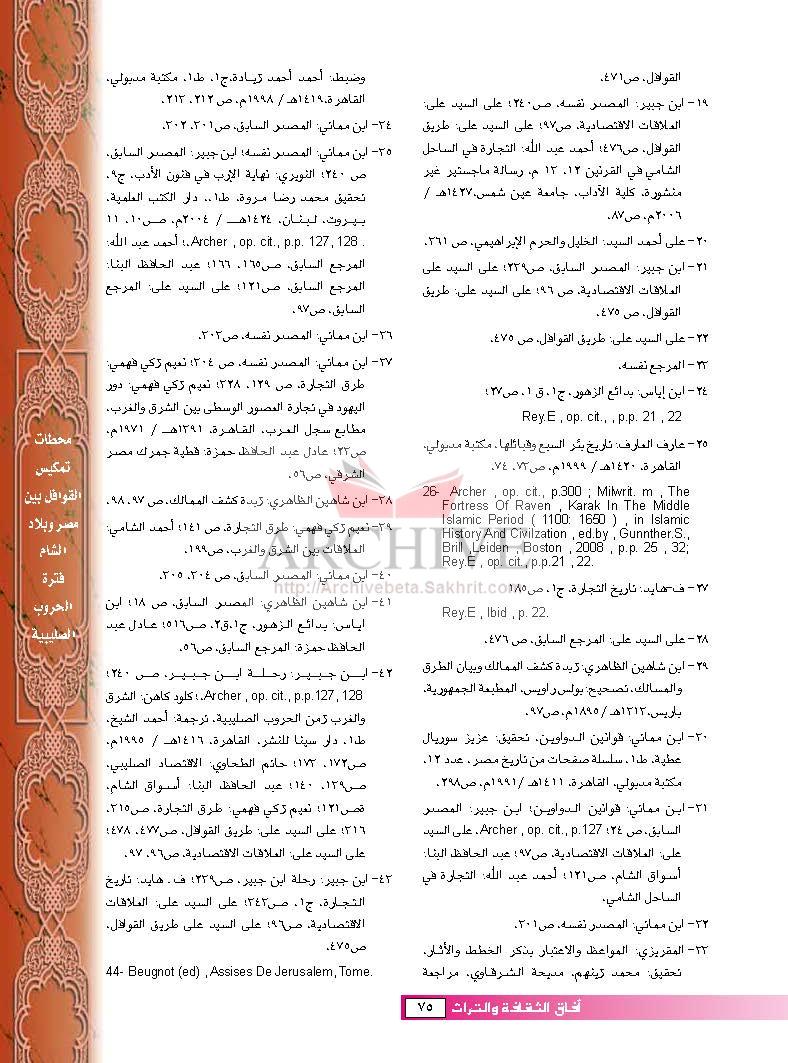 القوافل، ص٤٧١.
١٩- ابن جبير: المصدر نفسه، ص٢٤٠؛ على السيد على:
العلاقات الاقتصادية، ص٩٧؛ على السيد على: طريق
القوافل، ص٤٧٦؛ أحمد عبد الله: التجارة في الساحل
الشامي في القرنين ١٢، ١٣ م، رسالة ماجستير غير
منشورة، كلية الآداب، جامعة عين شمس،١٤٢٧هـ /
٢٠٠٦م، ص٨٧.
٢٠- على أحمد السيد: الخليل والحرم الإبراهيمي، ص ٢٦١.
٢١- ابن جبير: المصدر السابق، ص٢٣٩؛ على السيد على
العلاقات الاقتصادية، ص ٩٦؛ على السيد على: طريق
القوافل، ص ٤٧٥.
٢٢- على السيد على: طريق القوافل، ص ٤٧٥.
٢٣- المرجع نفسه.
٢٤- ابن إياس: بدائع الزهور، ج١، ق ١، ص٢٧؛
Rey.E , op. cit., , p.p. 21 , 22
٢٥- عارف العارف: تاريخ بئر السبع وقبائلها، مكتبة مدبولي،
القاهرة، ١٤٢٠هـ/ ١٩٩٩م، ص٧٣، ٧٤.
26- Archer , op. cit., p.300 ; Milwrit. m , The
Fortress Of Raven , Karak In The Middle
Islamic Period ( 1100: 1650 ) , in Islamic
History And Civilzation , ed.by , Gunnther.S.,
Brill, Leiden , Boston , 2008 , p.p. 25 , 32;
Rey.E , op. cit., p.p.21 , 22.
٢٧- ف-هايد: تاريخ التجارة، ج١، ص١٨٥
Rey.E , Ibid , p. 22.
٢٨- على السيد على: المرجع السابق، ص ٤٧٦.
٢٩- ابن شاهين الظاهري: زبدة كشف الممالك وبيان الطرق
والمسالك، تصحيح: بولس راويس، المطبعة الجمهورية،
باريس،١٣١٢هـ/ ١٨٩٥م، ص٩٧.
٣٠- ابن مماتي: قوانين الدواوين، تحقيق: عزيز سوريال
عطية، ط١، سلسلة صفحات من تاريخ مصر، عدد ١٢،
مكتبة مدبولي، القاهرة، ١٤١١هـ /١٩٩١م، ص٢٩٨.
٣١- ابن مماتي: قوانين الدواوين؛ ابن جبير: المصدر
السابق، ص ٢٤؛ Archer , op. cit., p.127، على السيد
على: العلاقات الاقتصادية، ص٩٧؛ عبد الحافظ البنا:
أسواق الشام، ص١٢١؛ أحمد عبد الله: التجارة في
الساحل الشامي،
٣٢- ابن مماتي: المصدر نفسه، ص٢٠١.
٣٣- المقريزي: المواعظ والاعتبار بذكر الخطط والأثار،
تحقيق: محمد زينهم، مديحة الشرقاوي، مراجعة
وضبط: أحمد أحمد زيادة،ج١، ط١، مكتبة مدبولي،
القاهرة،١٤١٩هـ/ ١٩٩٨م، ص ٢١٢، ٢١٣.
٣٤- ابن مماتي: المصدر السابق، ص٢٠١، ٣٠٢.
٣٥- ابن مماتي: المصدر نفسه؛ ابن جبير: المصدر السابق،
ص ٢٤٠؛ النويري: نهاية الإرب في فنون الأدب، ج٩،
تحقيق محمد رضا مروة، ط١، دار الكتب العلمية،
بيروت، لبنان، ١٤٢٤هـ / ٢٠٠٤م، ص١٠، ١١
. Archer , op. cit., p.p. 127, 128؛ أحمد عبد الله:
المرجع السابق، ص١٦٥، ١٦٦؛ عبد الحافظ البنا:
المرجع السابق، ص١٢١؛ على السيد على: المرجع
السابق، ص٩٧.
٣٦- ابن مماتي: المصدر نفسه، ص٣٠٣.
٣٧- ابن مماتي: المصدر نفسه، ص ٣٠٤؛ نعيم زكي فهمي:
طرق التجارة، ص ١٢٩، ٣٢٨؛ نعيم زكي فهمي: دور
اليهود في تجارة العصور الوسطى بين الشرق والغرب،
مطابع سجل العرب، القاهرة، ١٣٩١هـ / ١٩٧١م،
ص٢٣؛ عادل عبد الحافظ حمزة: قطية جمرك مصر
الشرقي، ص٥٦.
٣٨- ابن شاهين الظاهري: زبدة كشف الممالك، ص ٩٧، ٩٨.
٣٩- نعيم زكي فهمي: طرق التجارة، ص ١٤١؛ أحمد الشامي:
العلاقات بين الشرق والغرب، ص١٩٩.
٤٠- ابن مماتي: المصدر السابق، ص ٣٠٤، ٣٠٥.
٤١- ابن شاهين الظاهري: المصدر السابق، ص ١٨؛ ابن
اياس: بدائع الزهور، ج١،ق٢، ص٥١٦؛ عادل عبد
الحافظ حمزة: المرجع السابق، ص٥٦.
٤٢- ابن جبير: رحلة ابن جبير، ص ٢٤٠؛
Archer , op. cit., p.p.127, 128.؛ كلود كاهن: الشرق
والغرب زمن الحروب الصليبية، ترجمة: أحمد الشيخ،
ط١، دار سينا للنشر، القاهرة، ١٤١٦هـ / ١٩٩٥م،
ص١٧٢، ١٧٣؛ حاتم الطحاوي: الاقتصاد الصليبي،
ص١٣٩، ١٤٠؛ عبد الحافظ البنا: أسواق الشام،
ةص١٢١؛ نعيم زكي فهمي: طرق التجارة، ص٣١٥،
٣١٦؛ على السيد على: طريق القوافل، ص٤٧٧، ٤٧٨؛
على السيد على: العلاقات الاقتصادية، ص٩٦، ٩٧.
٤٣- ابن جبير: رحلة ابن جبير، ص٢٣٩؛ ف. هايد: تاريخ
التجارة، ج١، ص٣٤٣؛ على السيد على: العلاقات
الاقتصادية، ص٩٦؛ على السيد على طريق القوافل،
ص٤٧٥.
44- Beugnot (ed) , Assises De Jerusalem, Tome.
محطات
تمكيس
القوافل بين
مصر وبلاد
الشام
فترة
الحروب
الصليبية
ARCHIVE
http://Archivebeta.Sakhrit.com
آفاق الثقافة والتراث ٧٥